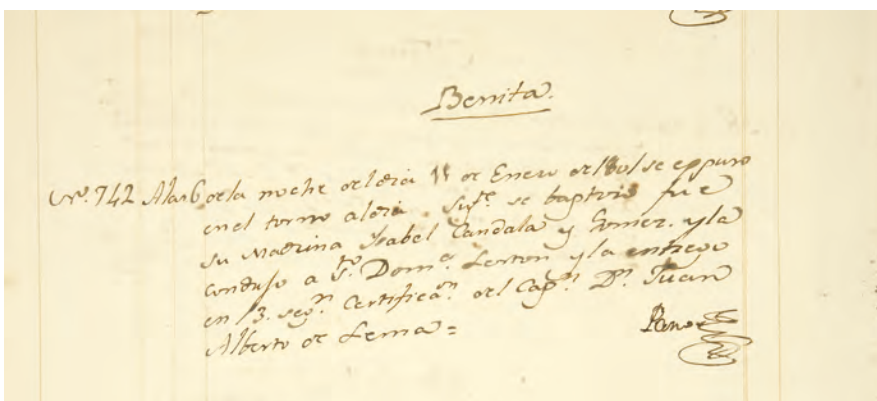 Benita.
Nº. 742 Alas 6 de la noche del dia 11 de Enero de 1801 se expuso
en el torno al dia Sigte. se baptizó fue
su Madrina Ysabel Candala y Gomez. y la
condujo a Sto. Domo. Lerton y la entrego
en 13. segn. Certificaon. del Capn. Dn. Juan
Alberto de Lema =